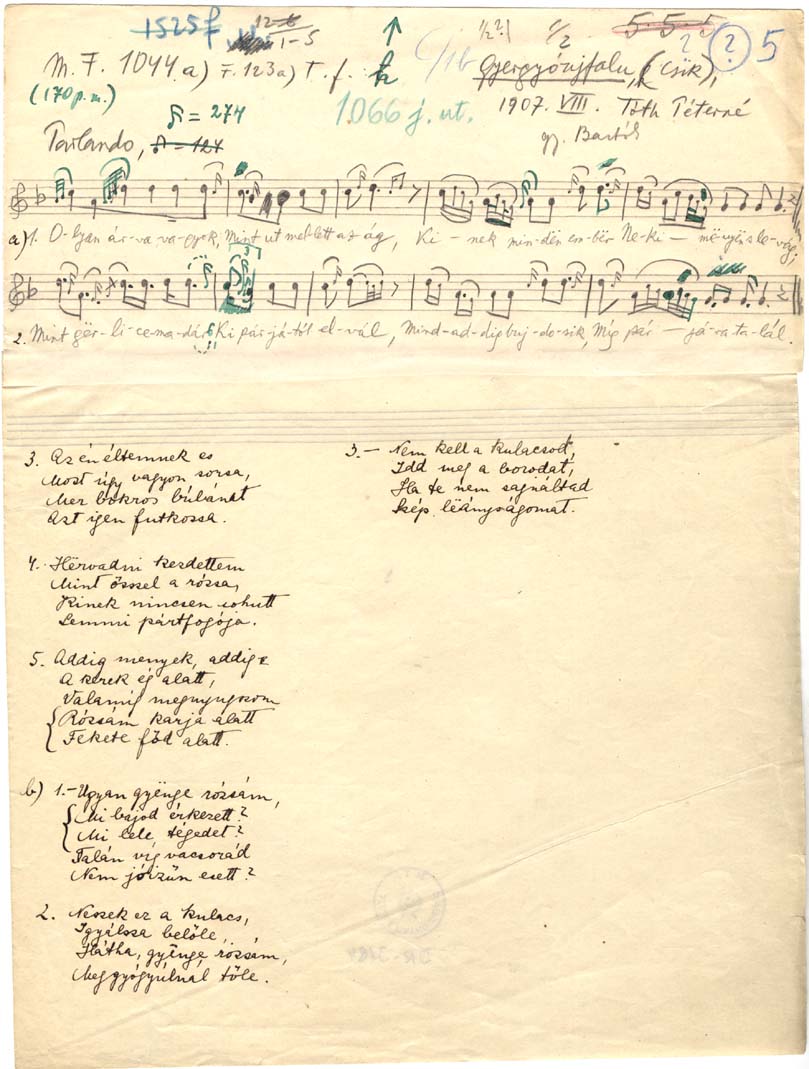 1525f 12-6 1-5 ½? ½ 5-5-5 ? ? 5
M. F. 1044. a) F. 123a) T. f. k C/1b Gyergyóújfalu, (Csik),
(170 p.m.) = 274 1066 j. ut. 1907. VIII. Tóth Péterné
Parlando, = 124 gy. Bartók
a) 1. O-lyan ár-va va-gyok, Mint ut mel-lett az ág, Ki-nek min-dën em-bër Ne-ki-mënyën s le-vág;
2. Mint gër-li-ce-ma-dár Ki pár-já-tól el-vál, Mind-ad-dig buj-do-sik, Míg pár-já-ra ta-lál.
3. Az én éltemnek es
Most úgy vagyon sorsa,
Mer bokros búbánat
Azt igen futkossa.
4. Hërvadni kezdettem
Mint ősszel a rózsa,
Kinek nincsen sohutt
Semmi pártfogója.
5. Addig menyek, addig
A kerek ég alatt,
Valamíg megnyugszom
Rózsám karja alatt
Fekete főd alatt.
b) 1.- Ugyan gyënge rózsám,
Mi bajod érkezett?
Mi lele tégedet?
Talán víg vacsorád
Nem jóízün esett?
2. Neszek ez a kulacs,
Igyálssza belőle,
Hátha, gyënge rózsám,
Meggyógyúlnál tőle.
3.- Nem kell a kulacsod,
Idd meg a borodat,
Ha te nem sajnáltad
Szép lëányságomat.